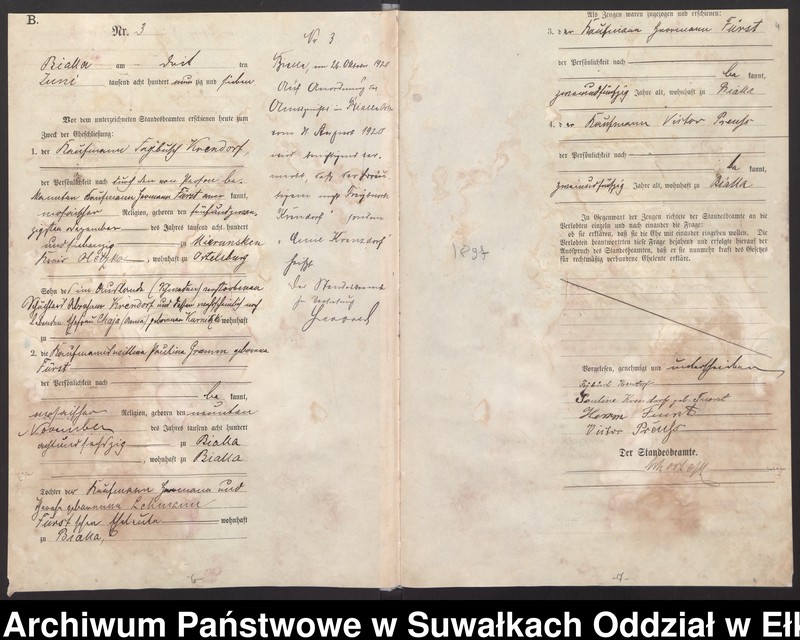 B.
Nr. 3
Bialla am Drit ten
Juni tausend acht hundert neun zig und sieben
Vor dem unterzeichneten Standesbeamten erschienen heute zum
Zweck der Eheschließung:
1. der Kaufmann Krendorf,
der Persönlichkeit nach durch den von Person be-
kannten Kaufmann Herrmann Fürst aner kannt,
mosaischer Religion, geboren den fünfundzwan-
zigsten Dezember des Jahres tausend acht hundert
undsiebenzig zu Mierunsken
Kreis Oletzko, wohnhaft zu Ortelsburg
Sohn des im Auslande verstorbenen
Abraham Krendorf und dessen
lebenden Ehefrau Chaja geborenen wohnhaft
zu
2. die Kaufmannswittwe Pauline Gramm geborene
Fürst
der Persönlichkeit nach
be kannt,
mosaischer Religion, geboren den neunten
November des Jahres tausend acht hundert
achtundsechszig zu Bialla
, wohnhaft zu Bialla
Tochter der Kaufmann Hermann und
geborenen Lehmann
Fürst'schen Eheleute wohnhaft
zu Bialla,
6
Nr 3
Bialla, am 26. Oktober 1920
Auf Anordnung des
Amtsgerichts in Bialla
vom 21. August 1920
wird berichtigend ver-
merkt, daß der Bräu-
tigam nicht
"Krendorf" sondern
heißt
Der Standesbeamte
In Vertretung
1897
Als Zeugen waren zugezogen und erschienen:
3. der Kaufmann Herrmann Fürst
der Persönlichkeit nach
be kannt,
zweiundfünfzig Jahre alt, wohnhaft zu Bialla
4. der Kaufmann Victor Preuß
der Persönlichkeit nach
be kannt,
zweiundfünfzig Jahre alt, wohnhaft zu Bialla
In Gegenwart der Zeugen richtete der Standesbeamte an die
Verlobten einzeln und nach einander die Frage:
ob sie erklären, daß sie die Ehe mit einander eingehen wollen. Die
Verlobten beantworteten diese Frage bejahend und erfolgte hierauf der
Ausspruch des Standesbeamten, daß er sie nunmehr kraft des Gesetzes
für rechtmäßig verbundene Eheleute erkläre.
Vorgelesen, genehmigt und unterschrieben
Krendorf
Pauline Krendorf geb. Fuerst
Herrm Fürst
Victor Preuß
Der Standesbeamte.
7
Archiwum Państwowe w Suwałkach Oddział w Eł